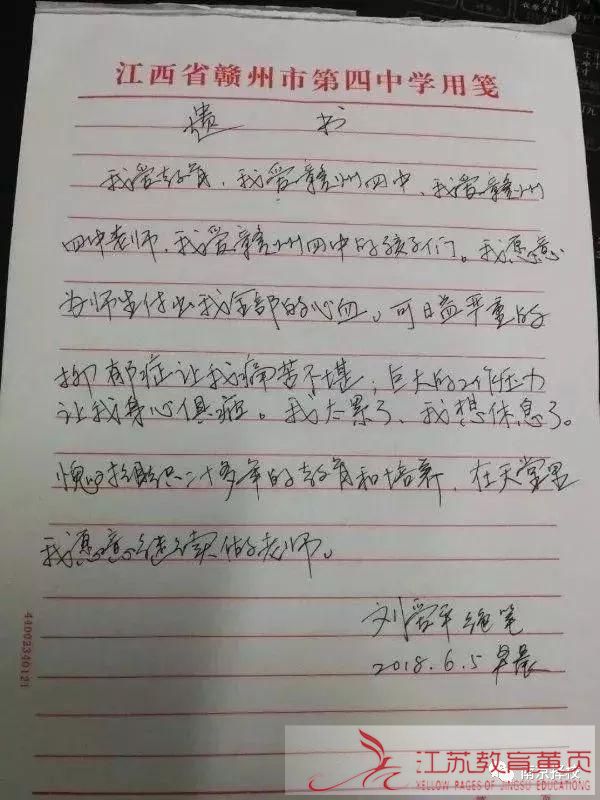 江西省赣州市第四中学用笺
遗 书
我爱教育、我爱赣州四中、我爱赣州
四中老师、我爱赣州四中的孩子们。我愿意
为师生付出我全部的心血。可日益严重的
抑郁症让我痛苦不堪；巨大的工作压力
让我身心俱疲。我太累了、我想休息了。
愧对组织二十多年的教育和培养，在天堂里
我愿意继续做老师。
刘爱平 绝笔
2018.6.5 早晨
44002340121
江苏教育黄页
YELLOW PAGES OF JINGSU EDUCATIONG
南京择校